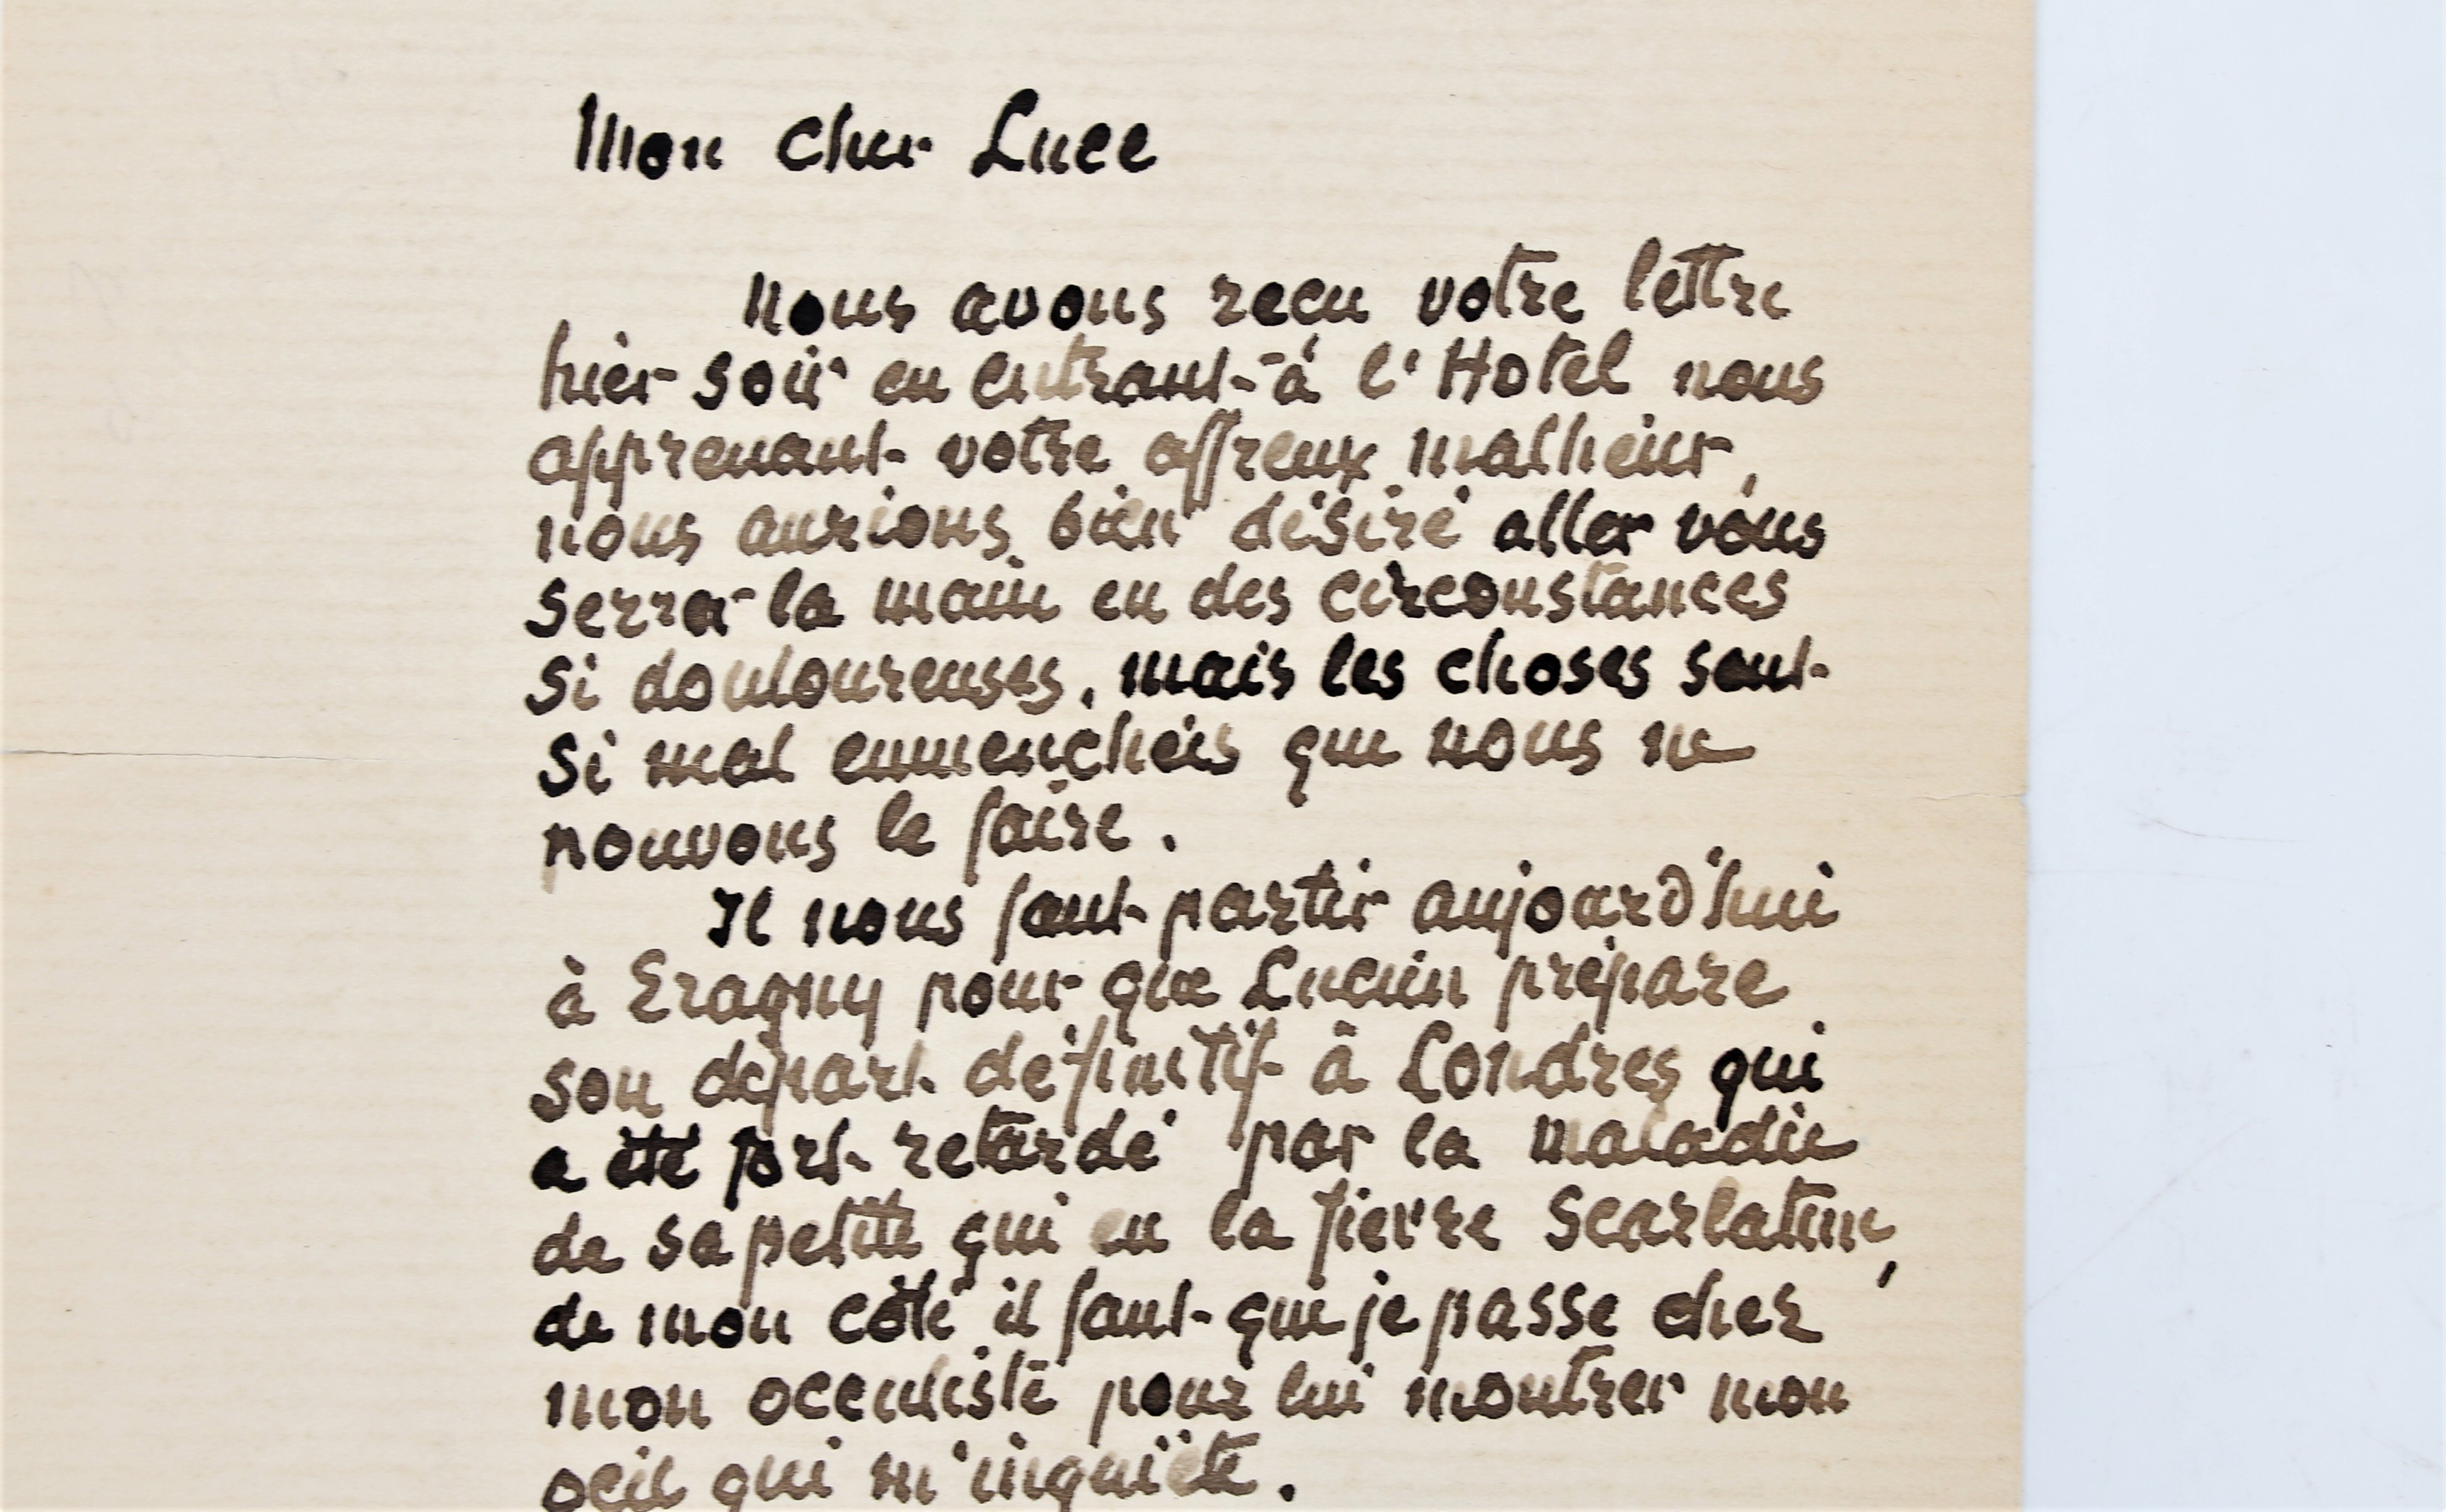 Mon cher Luce
Nous avons reçu votre lettre
hier soir en entrant à l'Hotel nous
apprenant votre affreux malheur,
nous aurions bien désiré aller vous
serrer la main en des circonstances
si douloureuses, mais les choses sont
si mal emmenchées que nous ne
pouvons le faire.
Il nous faut partir aujourd'hui
à Eragny pour que Lucien prépare
son départ définitif à Londres qui
a été fort retardé par la maladie
de sa petite qui eu la fievre Scarlatine,
de mon côté il faut que je passe chez
mon occuliste pour lui montrer mon
oeil qui m'inquiète.